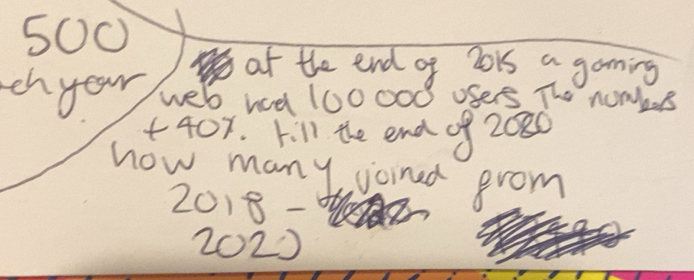 500
ch year
at the end of 2015 a gaming
web had 100 000 users The numbers
+ 40%. till the end of 2020
how many joined from
2018 -
2020